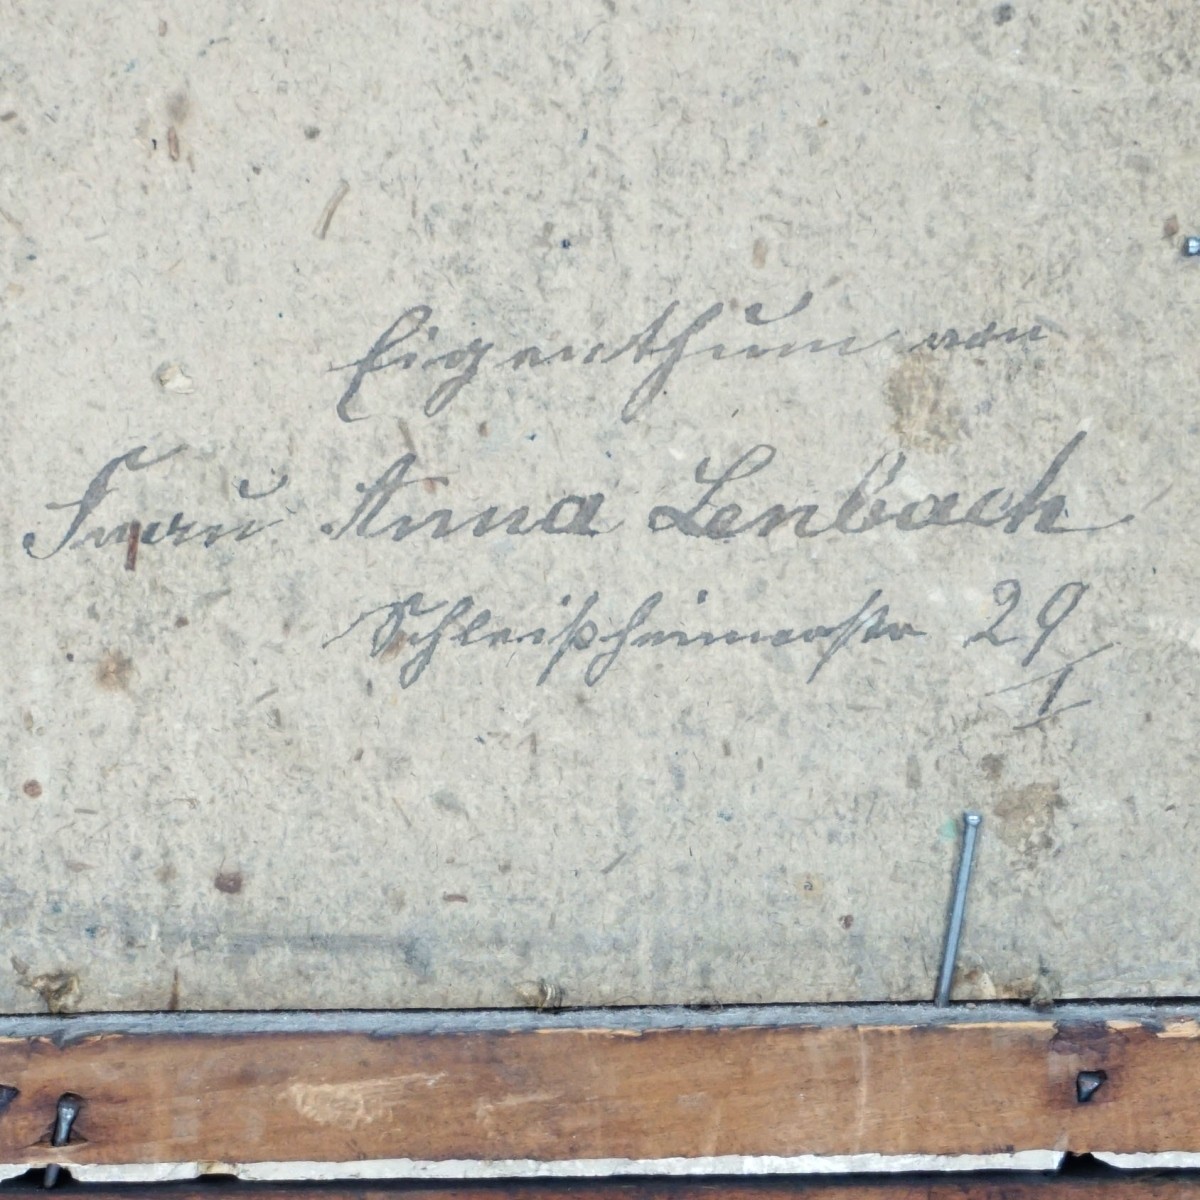 Eigenthum von
Frau Anna Lenbach
Schleißheimerstr 29
I